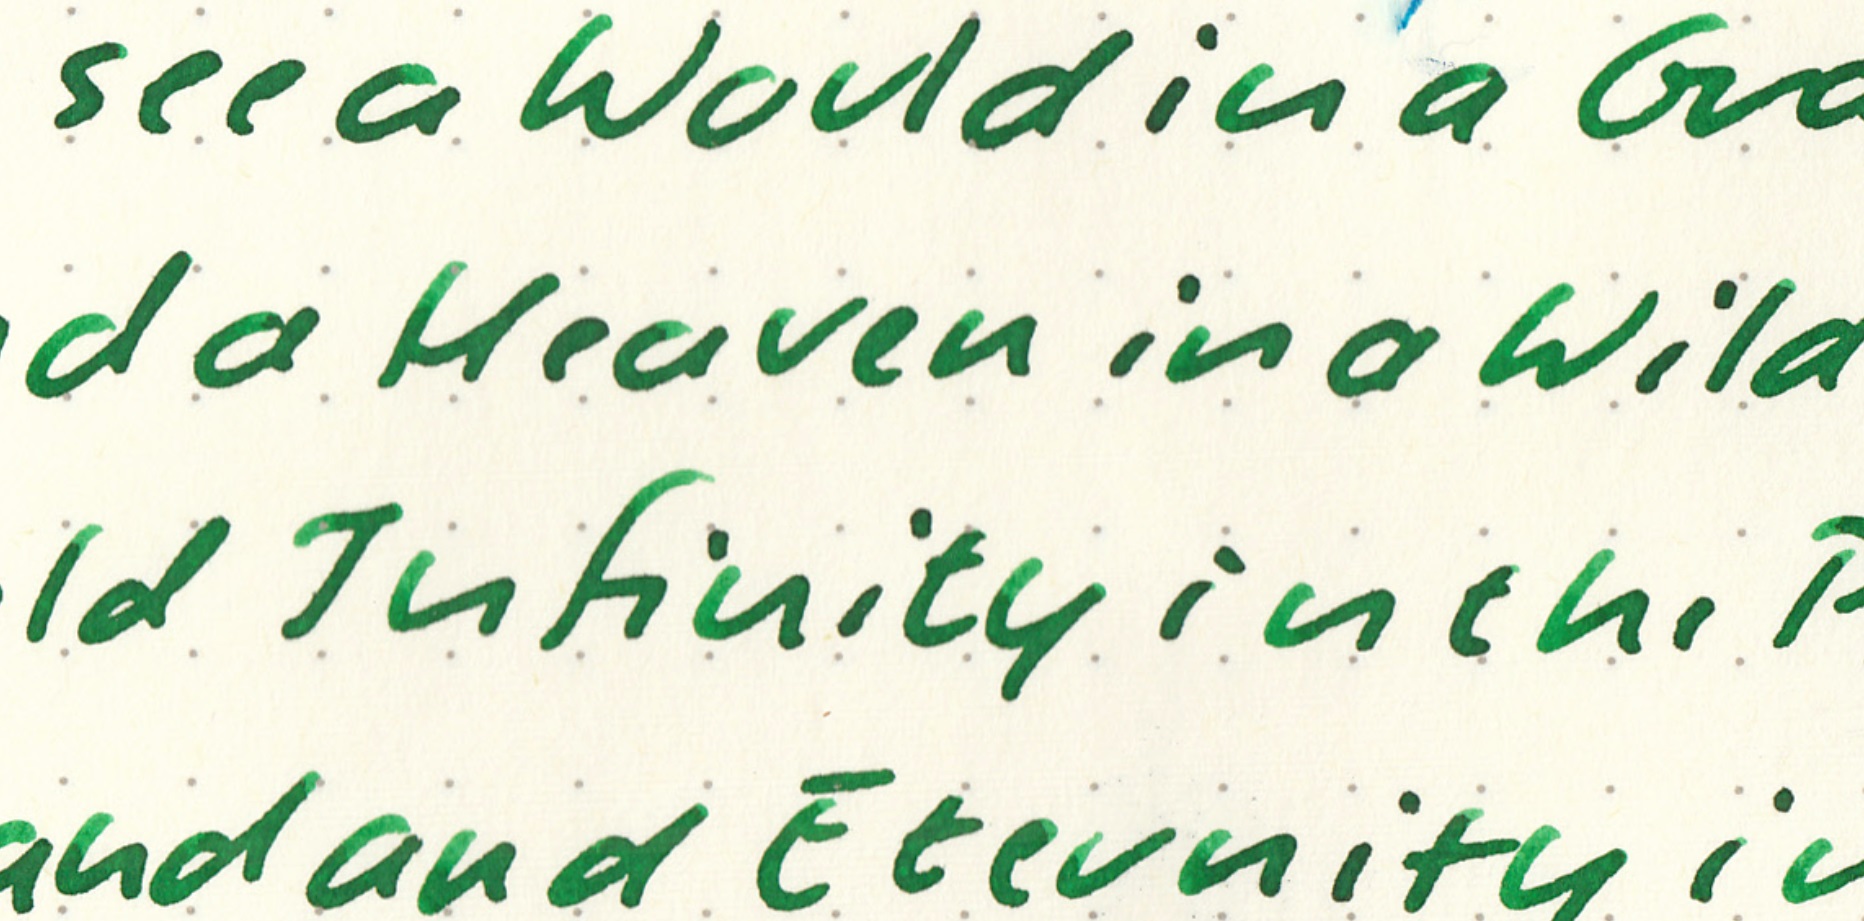 see a World in a Gra
nd a Heaven in a Wild
old Infinity in the P
and and Eternity in